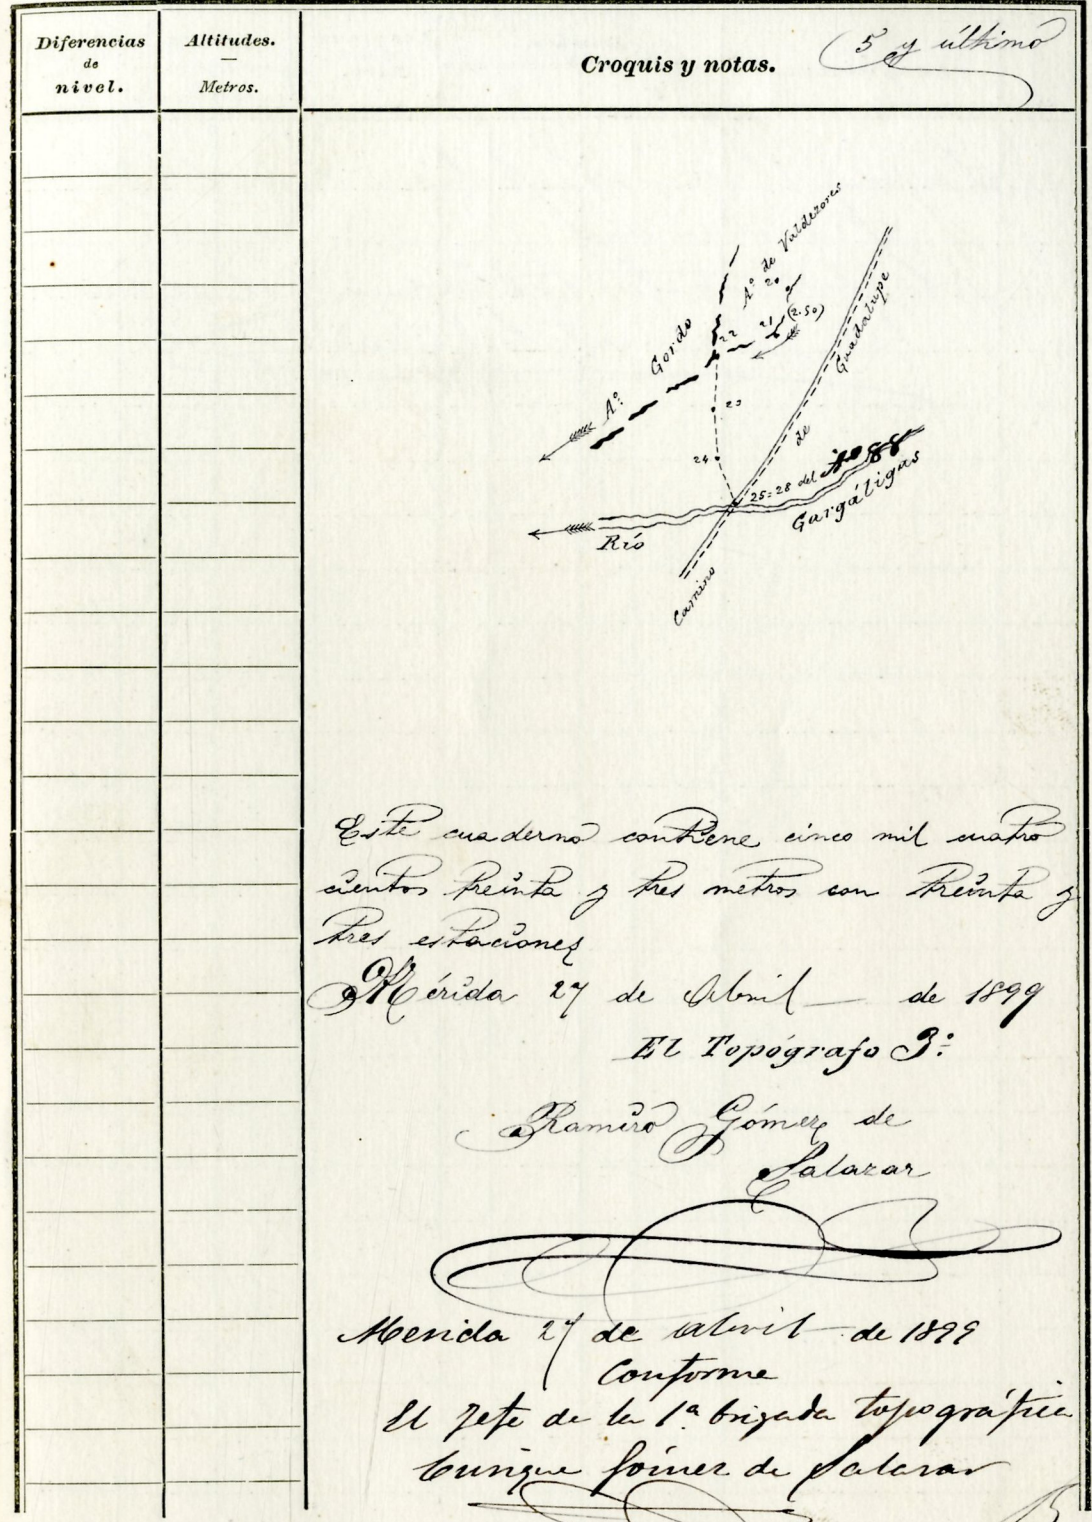 Diferencias
de
nivel.
Altitudes.
Metros.
Croquis y notas.
5 y último
Aº de Valdezores
20
21
(2.50)
22
Aº Gordo
23
24
25=28 del
Camino de Guadalupe
Río Gargáligas
Este cuaderno contiene cinco mil cuatro
cientos treinta y tres metros con treinta y
tres estaciones
Mérida 27 de Abril de 1899
El Topógrafo 3º
Ramiro Gómez de
Salazar
Merida 27 de abril de 1899
Conforme
El Jefe de la 1ª brigada topográfica
Enrique Gómez de Salazar